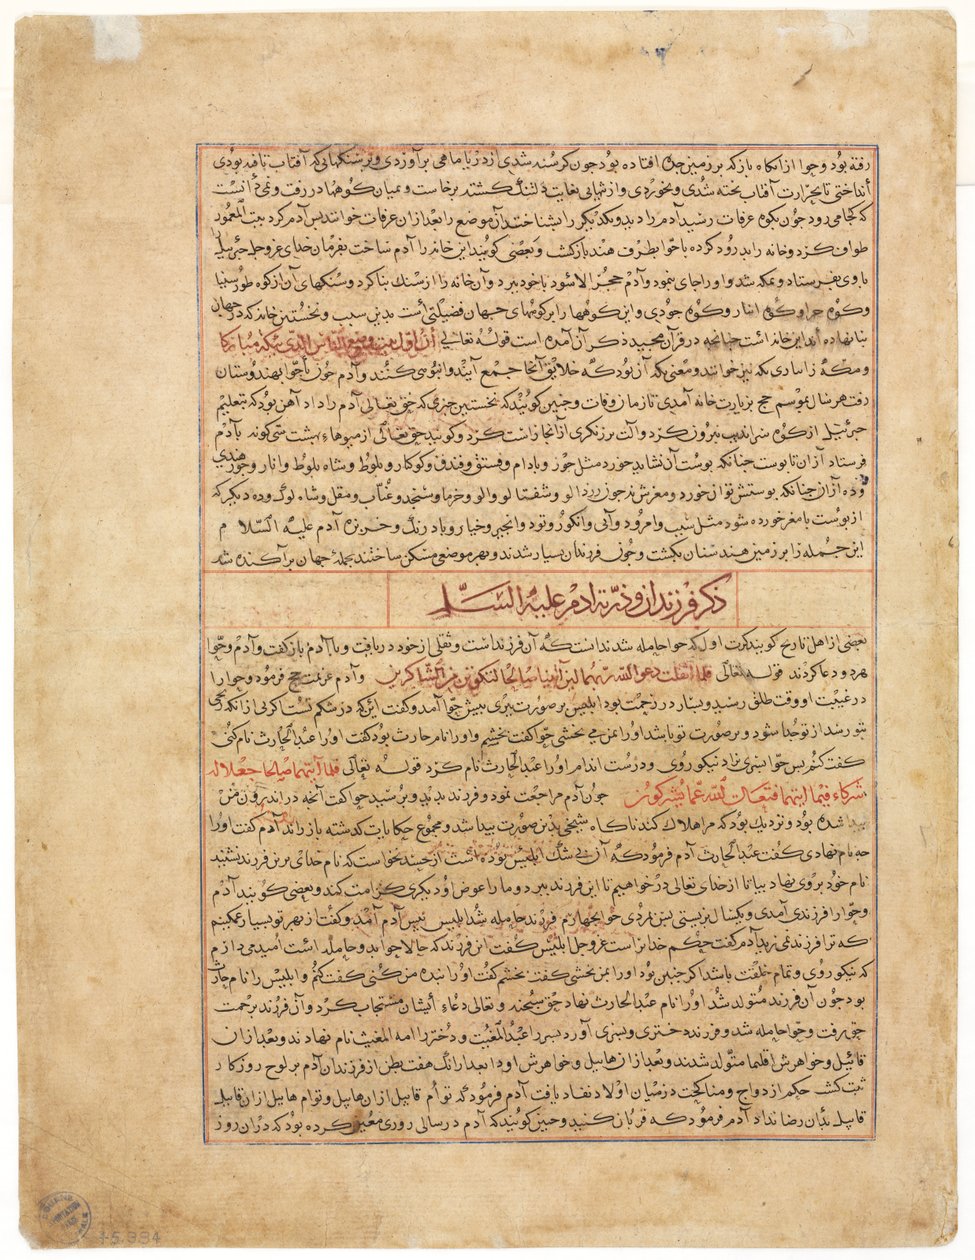 رفته بود و حوا از آنگاه باز که بر زمین جده افتاده بود چون گرسنه شدی از دریا ماهی برآوردی و بر سنگهایی که آفتاب تافته بودی
انداختی تا بحرارت آفتاب پخته شدی و بخوردی و از تنهایی بغایت دلتنگ گشته برخاست و میان کوهها در رفت و نمی دانست
که کجا می رود چون بکوه عرفات رسید آدم را دید و یکدیگر را بشناختند آن موضع را بعد از آن عرفات خوانند پس آدم گرد بیت المعمور
طواف کرد و خانه را بدرود کرده با حوا بطرف هند بازگشت و بعضی گویند این خانه را آدم ساخت بفرمان خدای عز و جل جبرئیل
با وی بفرستاد و بمکه شد و او را جای نمود و آدم حجر الاسود با خود ببرد و آن خانه را از سنگ بنا کرد و سنگهای آن از کوه طور سینا
و کوه حرا و کوه و کوه جودی و این کوهها را بر کوههای جهان فضیلتی است بدین سبب و نخستین خانه که در جهان
بنا نهاده اند این خانه است چنانچه در قرآن مجید ذکر آن آمده است قوله تعالی ان اول بیت وضع للناس للذی ببکه مبارکا
و مکه را بکه نیز خوانند و معنی بکه آن بود که خلایق آنجا جمع آیند و انبوهی کنند و آدم چون با حوا بهندوستان
رفت هر سال بموسم حج بزیارت خانه آمدی تا زمان وفات و چنین گویند که نخستین چیزی که حق تعالی آدم را داد آهن بود که بتعلیم
جبرئیل از کوه سراندیب بیرون کرد و آلت برزگری از آنجا راست کرد و گویند حق تعالی از میوهاء بهشت سی گونه بآدم
فرستاد ده از آن با پوست چنانکه پوست آن نشاید خورد مثل جوز و بادام و فستق و فندق و کوکنار و بلوط و شاه بلوط و انار و جوز هندی
و ده از آن چنانکه پوستش توان خورد و مغزش نه چون زردالو و شفتالو و آلو و خرما و سنجد و عناب و مقل و شاه لوک و ده دیگر که
از پوست تا مغز خورده شود مثل سیب و امرود و آبی و انگور و تود و انجیر و خیار و بادرنگ و خربزه آدم علیه السلام
این جمله را بر زمین هندستان بکشت و چون فرزندان بسیار شدند و بهر موضعی مسکن ساختند بجمله جهان پراکنده شد
ذکر فرزندان و ذریه ادم علیه السلام
بعضی از اهل تاریخ گویند کرت اول که حوا حامله شد ندانست که آن فرزند است و ثقلی از خود دریافت و با آدم باز گفت و آدم و حوا
هر دو دعا کردند قوله تعالی فلما اثقلت دعوا الله ربهما لئن آتیتنا صالحا لنکونن من الشاکرین و آدم عزیمت حج فرمود و حوا را
در غیبت او وقت طلق رسید و بسیار در زحمت بود ابلیس بر صورت پیری پیش حوا آمد و گفت این که در شکم تست اگر بی از آنکه رنجی
بتو رسد از تو جدا شود و بر صورت تو باشد او را بمن می بخشی حوا گفت بخشم و او را نام حارث بود گفت او را عبد الحارث نام کنی
گفت کنم پس حوا پسری بزاد نیکو روی و درست اندام او را عبد الحارث نام کرد قوله تعالی فلما آتیهما صالحا جعلا له
شرکاء فیما آتیهما فتعالی الله عما یشرکون چون آدم مراجعت نمود و فرزند بدید و پرسید حوا گفت آنچه در اندرون من
پیدا شده بود و نزدیک بود که مرا هلاک کند ناگاه شیخی بدین صورت پیدا شد و مجموع حکایات گذشته باز راند آدم گفت او را
چه نام نهادی گفت عبد الحارث آدم فرمود که آن بی شک ابلیس بوده است از حسد نخواست که نام خدای برین فرزند نشیند
نام خود بر وی نهاد بیا تا از خدای تعالی درخواهیم تا این فرزند ببرد و ما را عوض او دیگری کرامت کند و بعضی گویند آدم
و حوا را فرزندی آمدی و یکسال بزیستی پس بمردی حوا بچهارم فرزند حامله شد ابلیس پیش آدم آمد و گفت از بهر تو بسیار غمگینم
که ترا فرزند نمی زید آدم گفت حکم خدایراست عز و جل ابلیس گفت این فرزند که حالا حوا بدو حامله است امید می دارم
که نیکو روی و تمام خلقت باشد اگر چنین بود او را بمن بخشی گفت بخشم گفت او را بنده من کنی گفت کنم و ابلیس را نام حارث
بود چون آن فرزند متولد شد او را نام عبد الحارث نهاد حق سبحنه و تعالی دعاء ایشان مستجاب کرد و آن فرزند برحمت
حق رفت و حوا حامله شد و فرزند دختری و پسری آورد پسر را عبد المغیث و دختر را امه المغیث نام نهادند و بعد از آن
قابیل و خواهرش اقلیما متولد شدند و بعد از آن هابیل و خواهرش لوذا بعد از آنک هفت بطن از فرزندان آدم بر لوح روزگار
ثبت گشت حکم ازدواج و مناکحت در میان اولاد نفاذ یافت آدم فرمود که توأم قابیل از آن هابیل و توأم هابیل از آن قابیل
قابیل بدان رضا نداد آدم فرمود که قربان کنید و چنین گویند که آدم در سالی روزی معین کرده بود که در آن روز